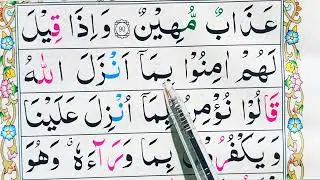 عَذَابٌ مُّهِيْنٌ ۝۹۰ وَاِذَا قِيْلَ
لَهُمْ اٰمِنُوْا بِمَاۤ اَنْزَلَ اللّٰهُ
قَالُوْا نُؤْمِنُ بِمَاۤ اُنْزِلَ عَلَيْنَا
وَيَكْفُرُوْنَ بِمَا وَرَآءَهٗ ۚ وَهُوَ